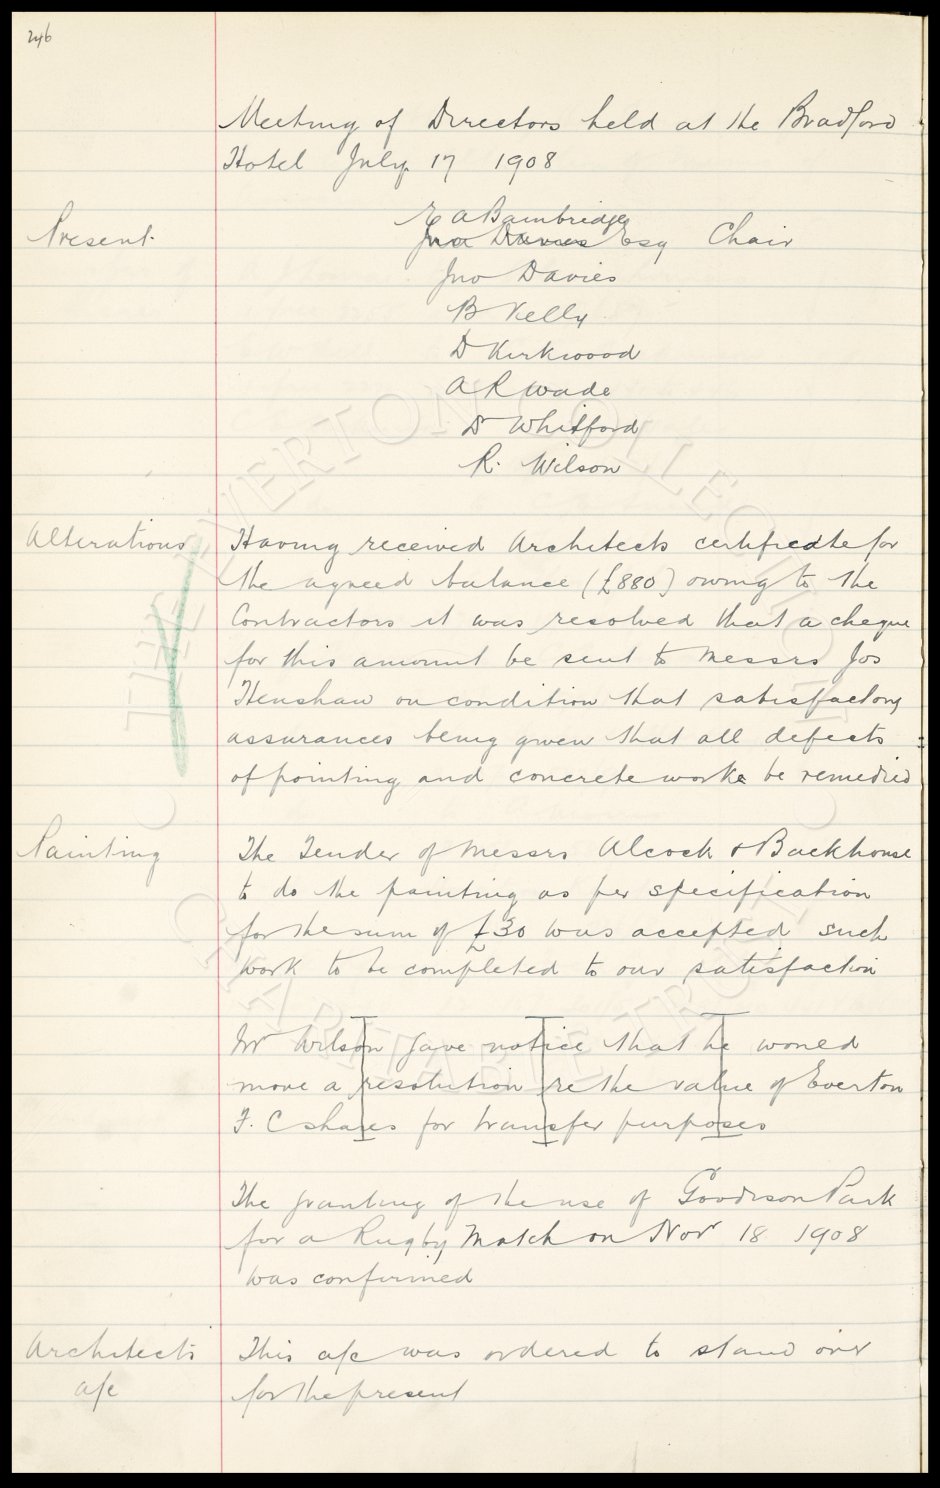 246
Meeting of Directors held at the Bradford
Hotel July 17 1908
Present. E A Bainbridge
Jno Davies Esq Chair
Jno Davies
B Kelly
D Kirkwood
A R Wade
Dr Whitford
R. Wilson
Alterations Having received Architects certificate for
the agreed balance (£880) owing to the
Contractors it was resolved that a cheque
for this amount be sent to Messrs Jos
Henshaw on condition that satisfactory
assurances being given that all defects
of pointing and concrete works be remedied
Painting The Tender of Messrs Alcock & Backhouse
to do the painting as per specification
for the sum of £30 was accepted such
work to be completed to our satisfaction
Mr Wilson gave notice that he would
move a resolution re the value of Everton
F. C shares for transfer purposes
The granting of the use of Goodison Park
for a Rugby Match on Nov 18 1908
was confirmed
Architect's This a/c was ordered to stand over
a/c for the present
© THE EVERTON COLLECTION CHARITABLE TRUST ©